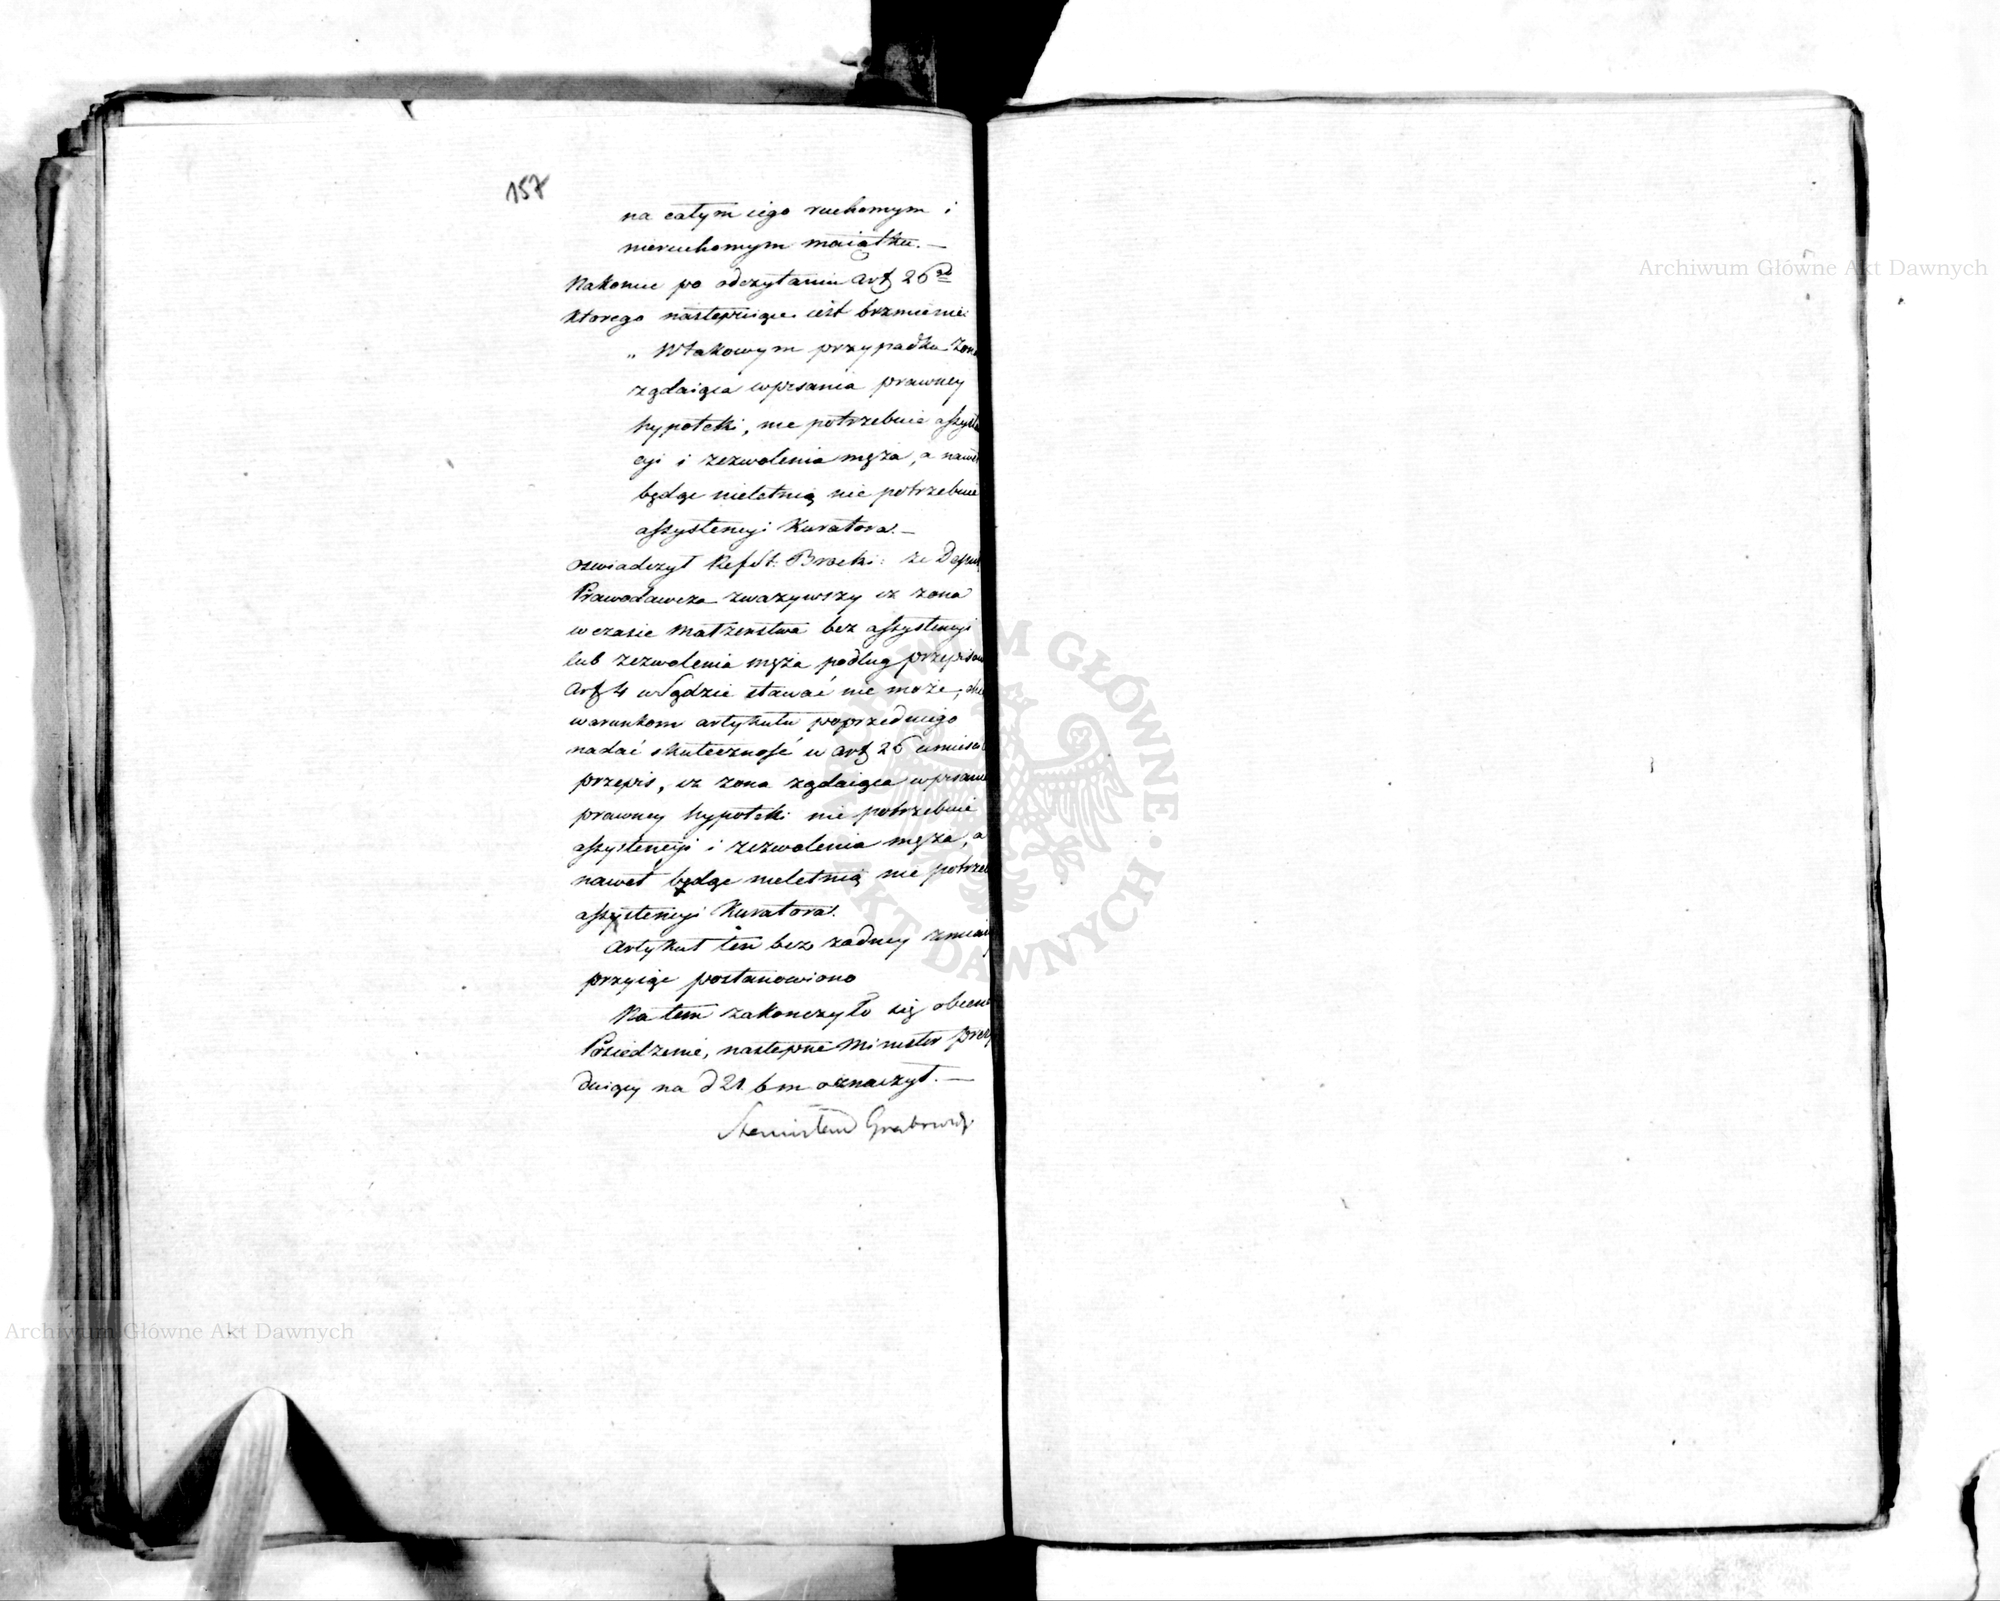 157
na całym iego ruchomym i
nieruchomym maiątku. —
Nakoniec po odczytaniu Art 26go
ktorego następuiące iest brzmienie:
„ W takowym przypadku żona
żądaiąca wpisania prawney
hypoteki, nie potrzebuie assysten
cyi i zezwolenia męża, a nawet
będąc nieletnią nie potrzebuie
assystencyi Kuratora. —
oswiadczył Ref St: że Deput
Prawodawcza zwazywszy iz zona
w czasie małzenstwa bez assystencyi
lub zezwolenia męża podług przepisow
Art 4 w Sądzie stawać nie może, chc
warunkom artykułu poprzedniego
nadać skuteczność w Art 26 umiesc
przepis, iz zona żądaiąca wpisania
prawney hypoteki nie potrzebuie
assystencyi i zezwolenia męża, a
nawet będąc nieletnią nie potrzeb
assystencyi Kuratora.
Artykuł ten bez zadney zmiany
przyiąć postanowiono
Na tem zakonczyło się obecne
Posiedzenie, następne Minister Prezy
duiący na d 21 b m oznaczył. —
Stanisław Grabowski
Archiwum Główne Akt Dawnych
Archiwum Główne Akt Dawnych
ARCHIWUM GŁÓWNE · AKT DAWNYCH ·